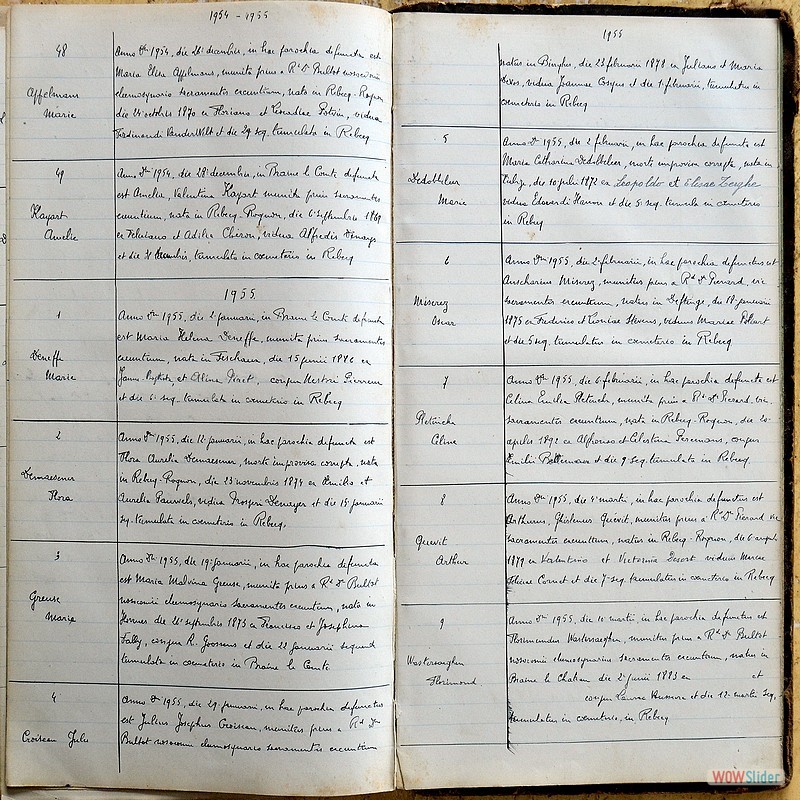 1954 - 1955
48
Appelmans
Marie
Anno Dni 1954, die 26 decembris, in hac parochia defuncta est
Maria Elisa Appelmans, munita prius a Rdo Do Bultot nosocomii
elemosynario sacramentis exeuntium, nata in Rebecq-Rognon
die 24 octobris 1870 ex Floriano et Leocadia Potvin, vidua
Ferdinandi VanderWilt et die 29 seq. tumulata in Rebecq
49
Hayart
Amelie
Anno Dni 1954, die 28 decembris, in Braine le Comte defuncta
est Amelia, Valentina Hayart munita prius sacramentis
exeuntium, nata in Rebecq-Rognon, die 6 septembris 1869
ex et Adilia Chéron, vidua Alfredi Demaye
et die 31 decembris, tumulata in coemeterio in Rebecq
1955
1
Deneffe
Marie
Anno Dni 1955, die 2 januarii, in Braine le Comte defuncta
est Maria Helena Deneffe, munita prius sacramentis
exeuntium, nata in die 15 junii 1886 ex
Joanne-Baptista et Alina Piret, conjux Nestoris Pierreux
et die 6 seq. tumulata in coemeterio in Rebecq
2
Demaesener
Flora
Anno Dni 1955, die 12 januarii, in hac parochia defuncta est
Flora Aurelia Demaesener, morte improvisa correpta, nata
in Rebecq-Rognon, die 23 novembris 1874 ex Emilio et
Aurelia Pauwels, vidua Prosperi Demayer et die 15 januarii
seq. tumulata in coemeterio in Rebecq.
3
Greuse
Marie
Anno Dni 1955, die 19 januarii, in hac parochia defuncta
est Maria Malvina Greuse, munita prius a Rdo Do Bultot
nosocomii elemosynario sacramentis exeuntium, nata in
Hornes die 26 septembris 1873 ex Francisco et Josephina
Fally, conjux R. Goossens et die 22 januarii sequenti
tumulata in coemeterio in Braine le Comte.
4
Croiseau Jules
Anno Dni 1955, die 29 januarii, in hac parochia defunctus
est Julius Josephus Croiseau, munitus prius a Rdo Dno
Bultot nosocomii elemosynario sacramentis exeuntium
1955
natus in die 23 februarii 1878 ex Juliano et Maria
viduus Joannae et die 1 februarii, tumulatus in
coemeterio in Rebecq
5
Dedobbeleer
Marie
Anno Dni 1955, die 2 februarii, in hac parochia defuncta est
Maria Catharina Dedobbeleer, morte improvisa correpta, nata in
Tubize, die 10 julii 1872 ex Leopoldo et Elisae Zeeghe
vidua Edouardi Hanon et die 5 seq. tumulata in coemeterio
in Rebecq
6
Miserez
Oscar
Anno Dni 1955, die 2 februarii, in hac parochia defunctus est
Anscharius Miserez, munitus prius a Rdo Do Pierard, vic
sacramentis exeuntium, natus in Deftinge, die 18 januarii
1875 ex Frederico et Leonia Stevens, viduus Mariae
et die 5 seq. tumulatus in coemeterio in Rebecq
7
Pletincks
Céline
Anno Dni 1955, die 6 februarii, in hac parochia defuncta est
Celina Emilia Pletincks, munita prius a Rdo Do Pierard, vic.
sacramentis exeuntium, nata in Rebecq-Rognon, die 20
aprilis 1892 ex Alphonso et Celestina Seremans, conjux
Emilii Bellemans et die 9 seq. tumulata in Rebecq.
8
Quevit
Arthur
Anno Dni 1955, die 4 martii, in hac parochia defunctus est
Arthurus, Ghislenus Quevit, munitus prius a Rdo Do Pierard vic
sacramentis exeuntium, natus in Rebecq-Rognon, die 6 augusti
1879 ex Valentino et Victorina Desort viduus Mariae
Cornet et die 7 seq. tumulatus in coemeterio in Rebecq
9
Wastersaeghen
Florimond
Anno Dni 1955, die 10 martii, in hac parochia defunctus est
Florimundus Wastersaeghen, munitus prius a Rdo Do Bultot
nosocomii elemosynario sacramentis exeuntium, natus in
Braine le Chateau die 2 junii 1883 ex et
conjux Laurae et die 12 martii seq.
tumulatus in coemeterio, in Rebecq
WOWSlider